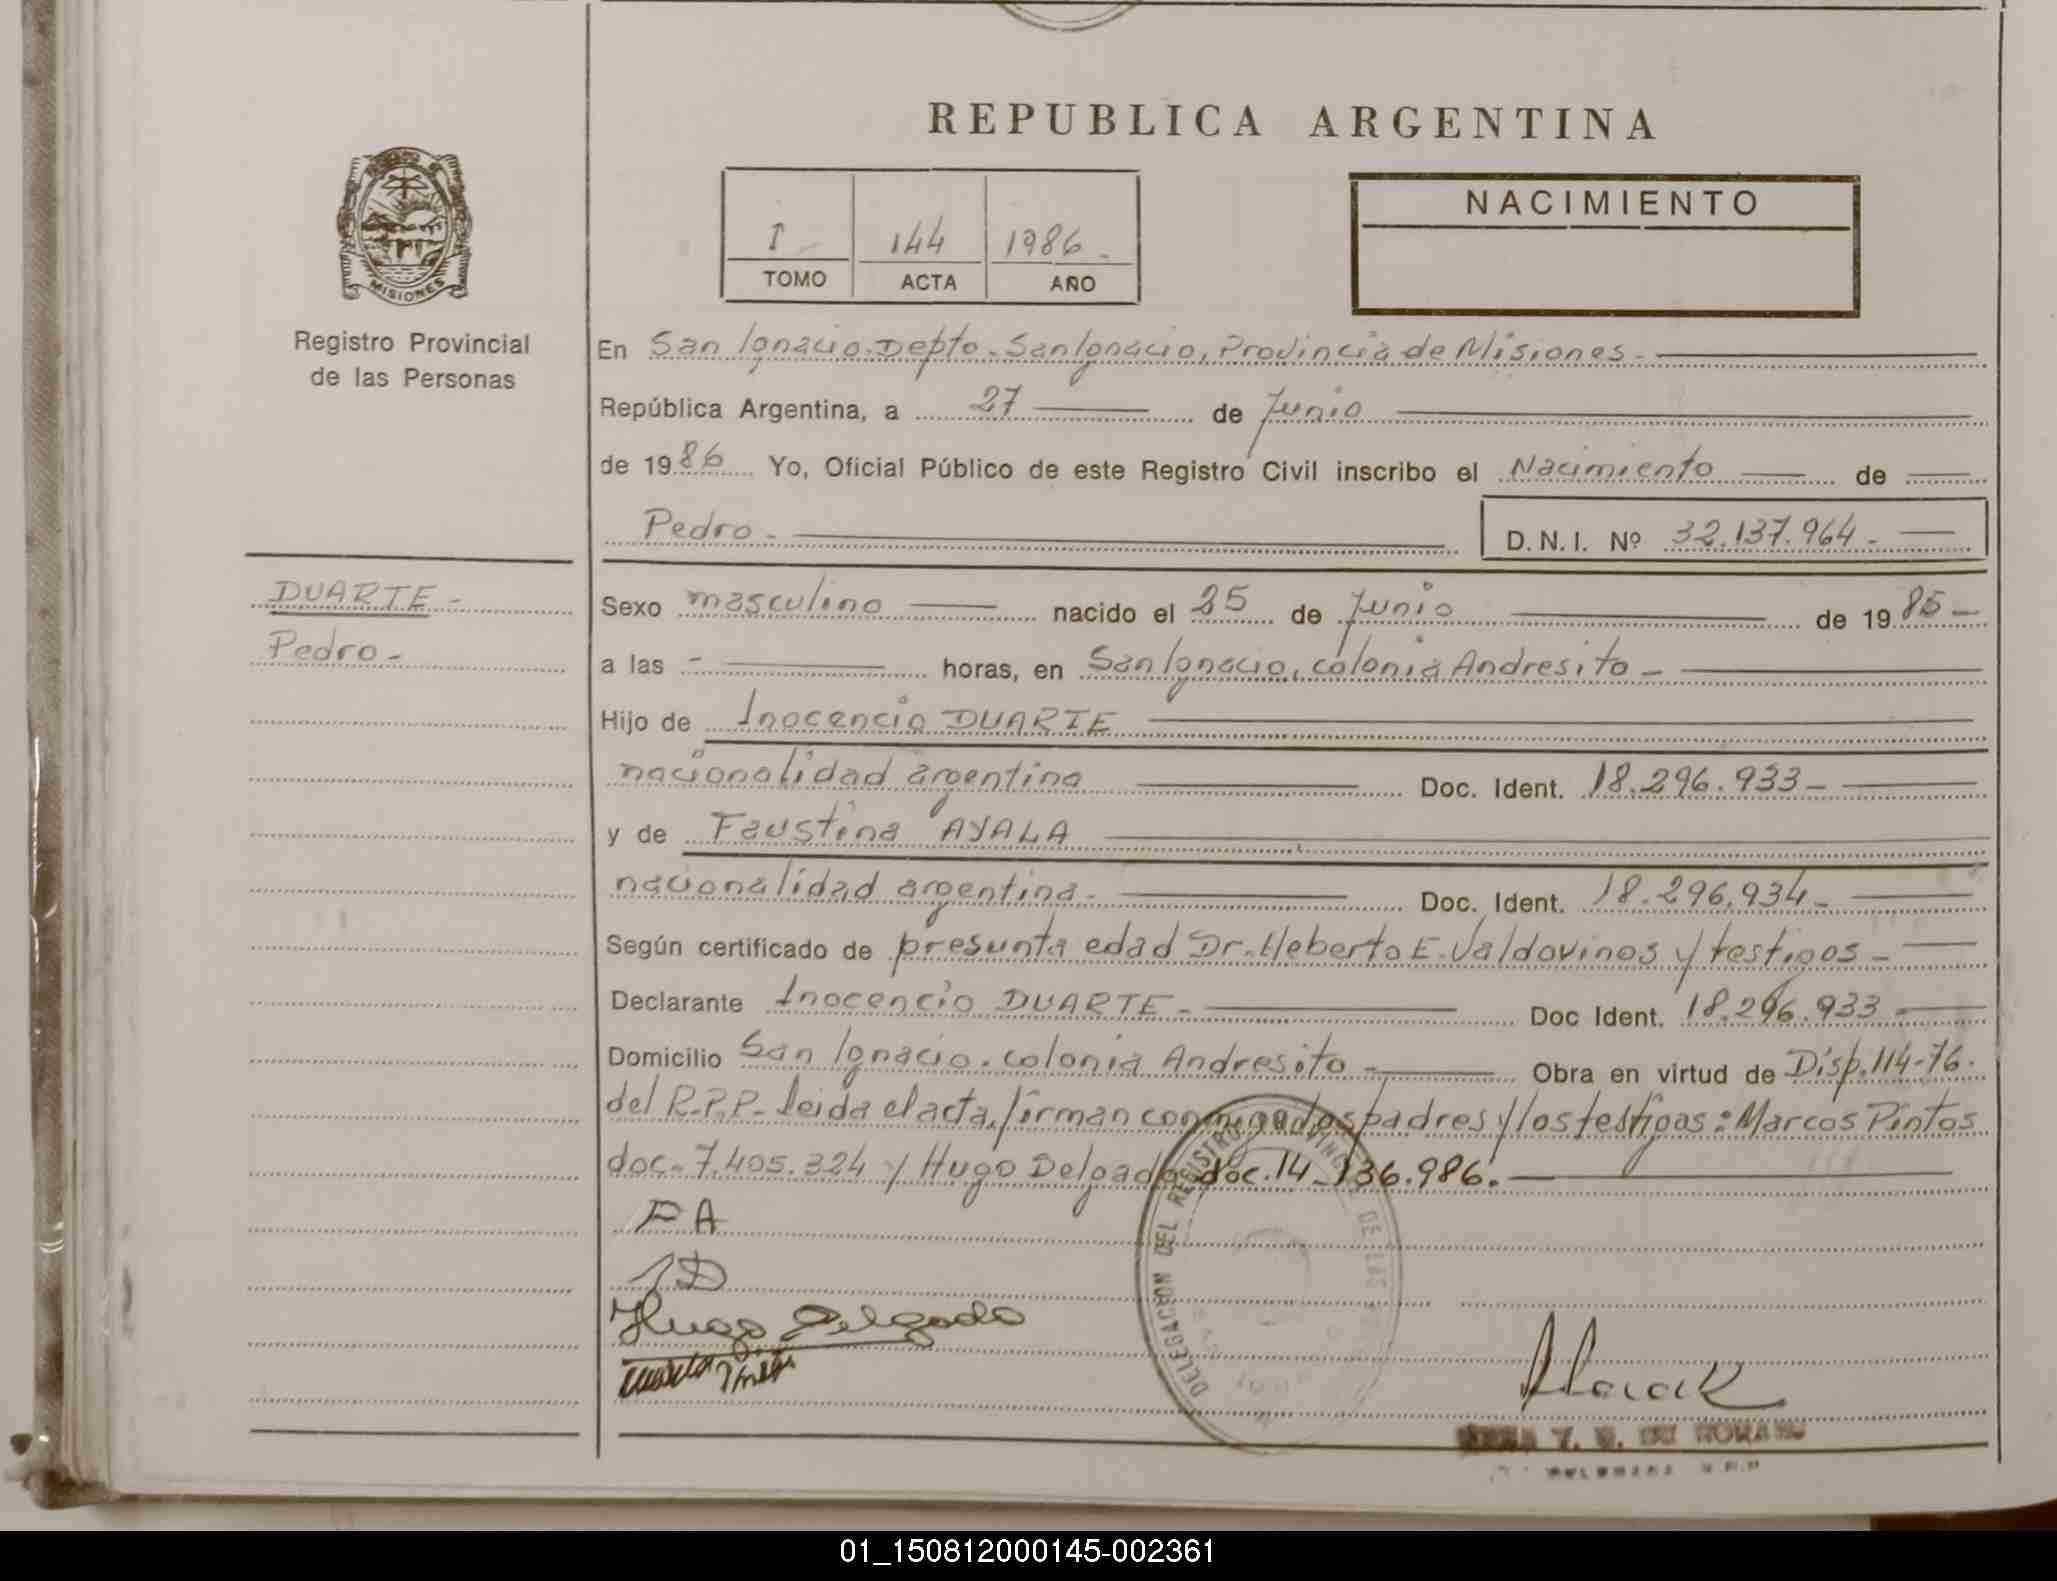 REPUBLICA ARGENTINA
MISIONES
Registro Provincial
de las Personas
I 144 1986
TOMO ACTA AÑO
NACIMIENTO
En San Ignacio. Depto. San Ignacio, Provincia de Misiones -
República Argentina, a 27 de Junio
de 1986 Yo, Oficial Público de este Registro Civil inscribo el Nacimiento de
Pedro - D.N.I. Nº 32.137.964 -
DUARTE -
Pedro -
Sexo masculino nacido el 25 de Junio de 1985 -
a las - horas, en San Ignacio, colonia Andresito -
Hijo de Inocencio DUARTE
nacionalidad argentina Doc. Ident. 18.296.933 -
y de Faustina AYALA
nacionalidad argentina - Doc. Ident. 18.296.934 -
Según certificado de presunta edad Dr. Heberto E. Valdovinos y testigos -
Declarante Inocencio DUARTE - Doc Ident. 18.296.933 -
Domicilio San Ignacio. colonia Andresito - Obra en virtud de Disp. 114-76.
del R.P.P. leida el acta, firman conmigo los padres y los testigos: Marcos Pintos
doc. 7.405.324 y Hugo Delgado doc. 14.136.986. -
FA
ID
Hugo Delgado
DELEGACION DEL REGISTRO DE LAS
01_150812000145-002361